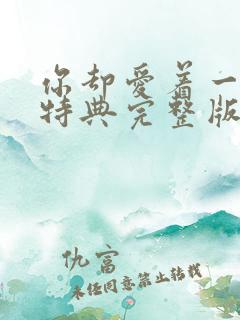 你却爱着一
特典完整版
仇富
未经同意禁止转载